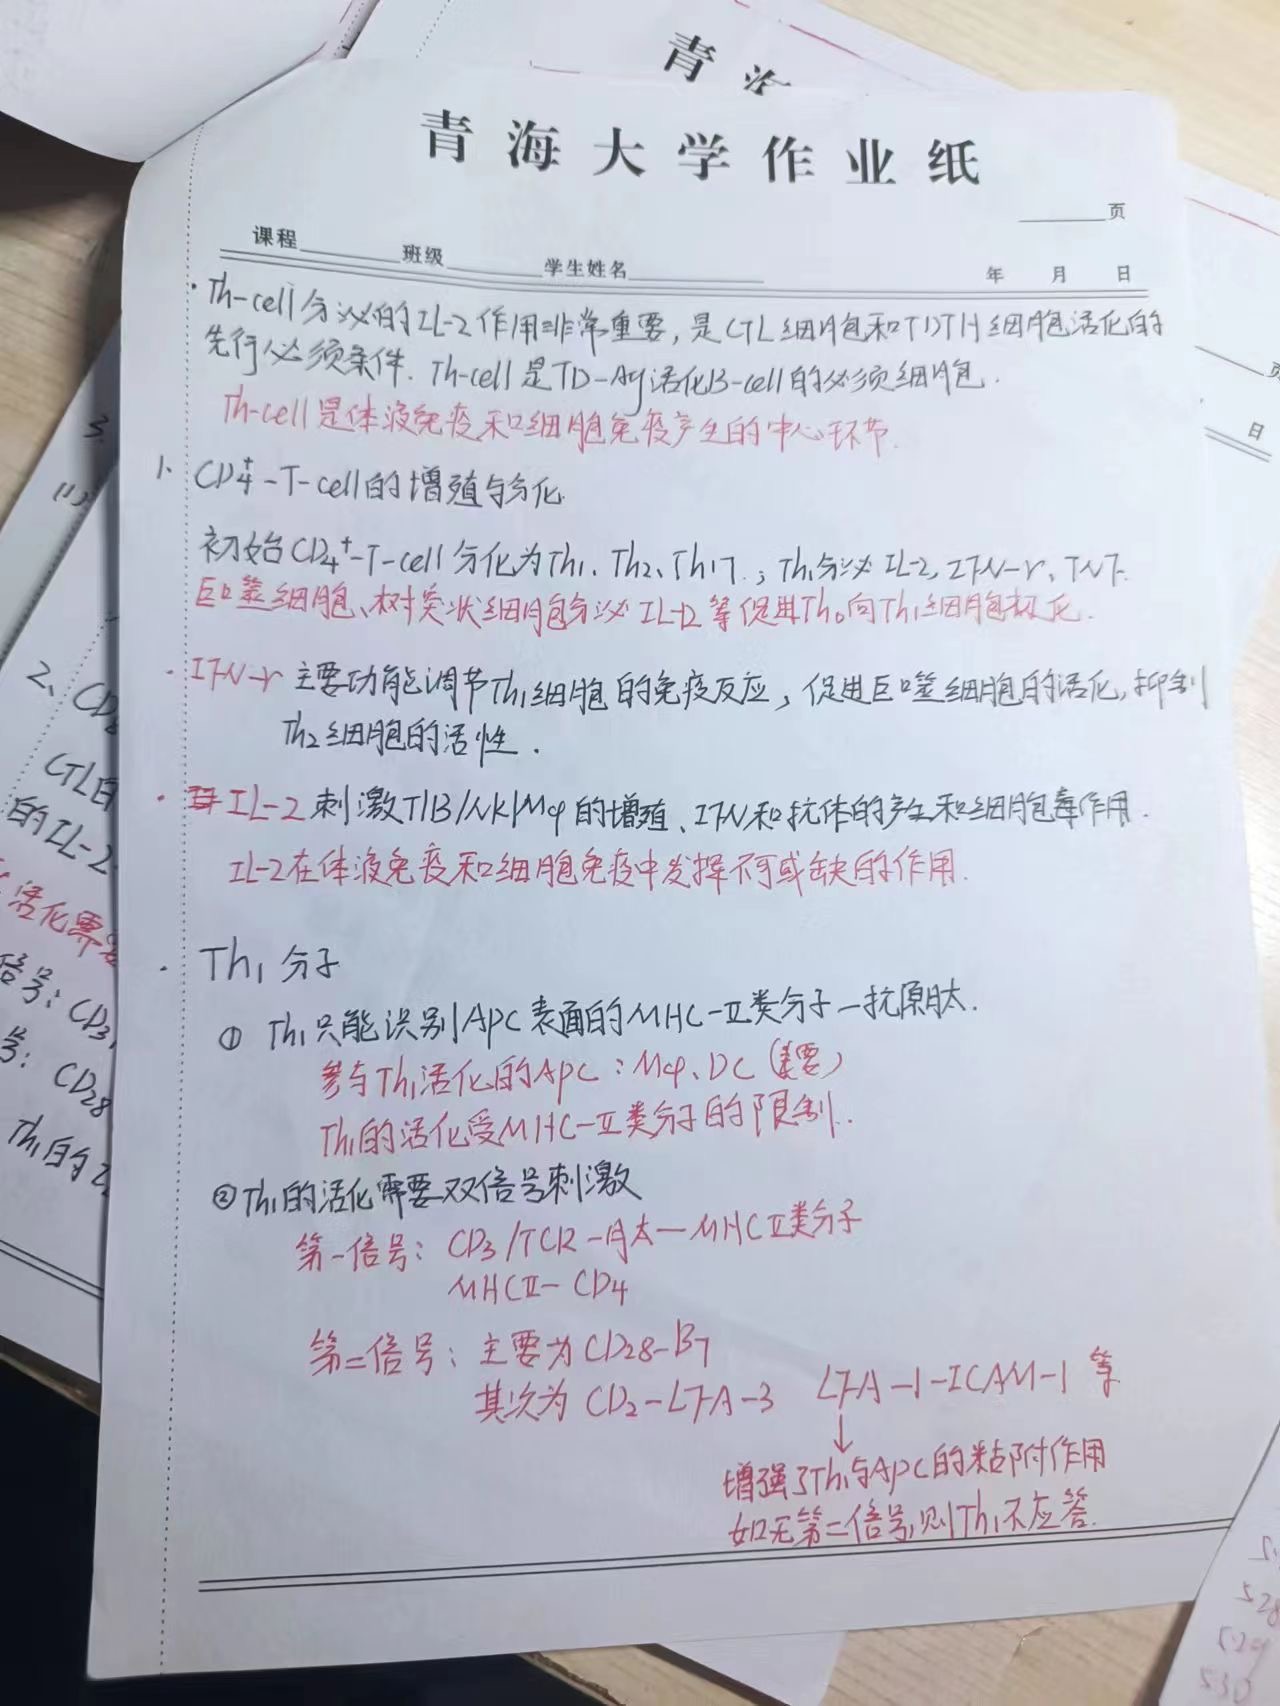 青海
青海大学作业纸
页
课程 班级 学生姓名 年 月 日
· Th-cell分泌的IL-2作用非常重要,是CTL细胞和TDTH细胞活化的
先行必须条件. Th-cell是TD-Ag活化B-cell的必须细胞.
Th-cell是体液免疫和细胞免疫产生的中心环节.
1、CD4⁺-T-cell的增殖与分化
初始CD4⁺-T-cell分化为Th1、Th2、Th17.;Th1分泌IL-2,IFN-γ、TNF.
巨噬细胞、树突状细胞分泌IL-12等促进Th0向Th1细胞极化.
· IFN-γ 主要功能调节Th1细胞的免疫反应,促进巨噬细胞的活化,抑制
Th2细胞的活性.
· IL-2 刺激T/B/NK/Mφ的增殖、IFN和抗体的产生和细胞毒作用.
IL-2在体液免疫和细胞免疫中发挥不可或缺的作用.
· Th1 分子
① Th1只能识别APC表面的MHC-Ⅱ类分子-抗原肽.
参与Th1活化的APC:Mφ、DC(主要)
Th1的活化受MHC-Ⅱ类分子的限制.
②Th1的活化需要双信号刺激
第一信号: CD3/TCR-肽-MHCⅡ类分子
MHCⅡ-CD4
第二信号: 主要为CD28-B7
其次为 CD2-LFA-3 LFA-1-ICAM-1 等
↓
增强了Th1与APC的粘附作用
如无第二信号,则Th1不应答.
3、
(1)
2、CD8
CTL的
的IL-2
活化需
信号: CD3
号: CD28
Th1的
页
日
5.28
5.29
5.30